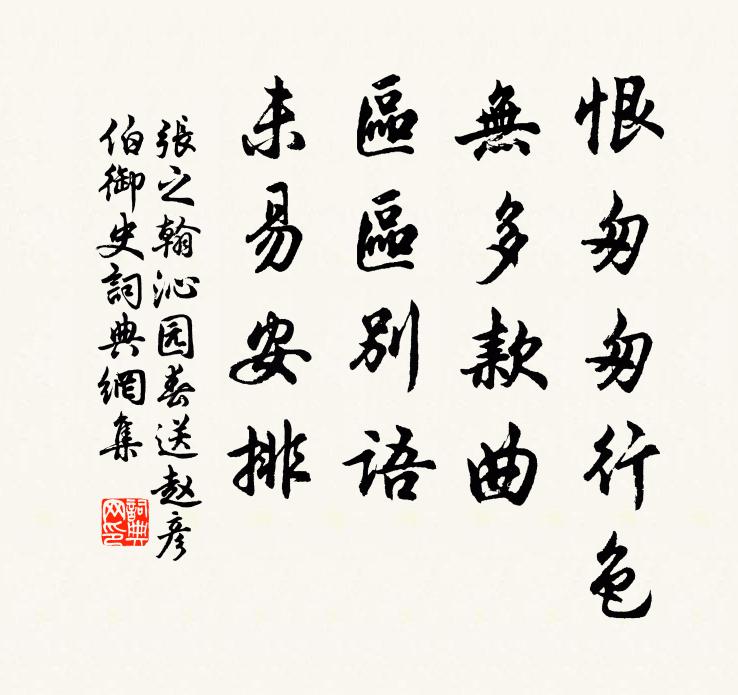 恨匆匆行色
無多款曲
區區別語
未易安排
張之翰沁园春送赵彦
伯御史詞典網集
詞典
网印